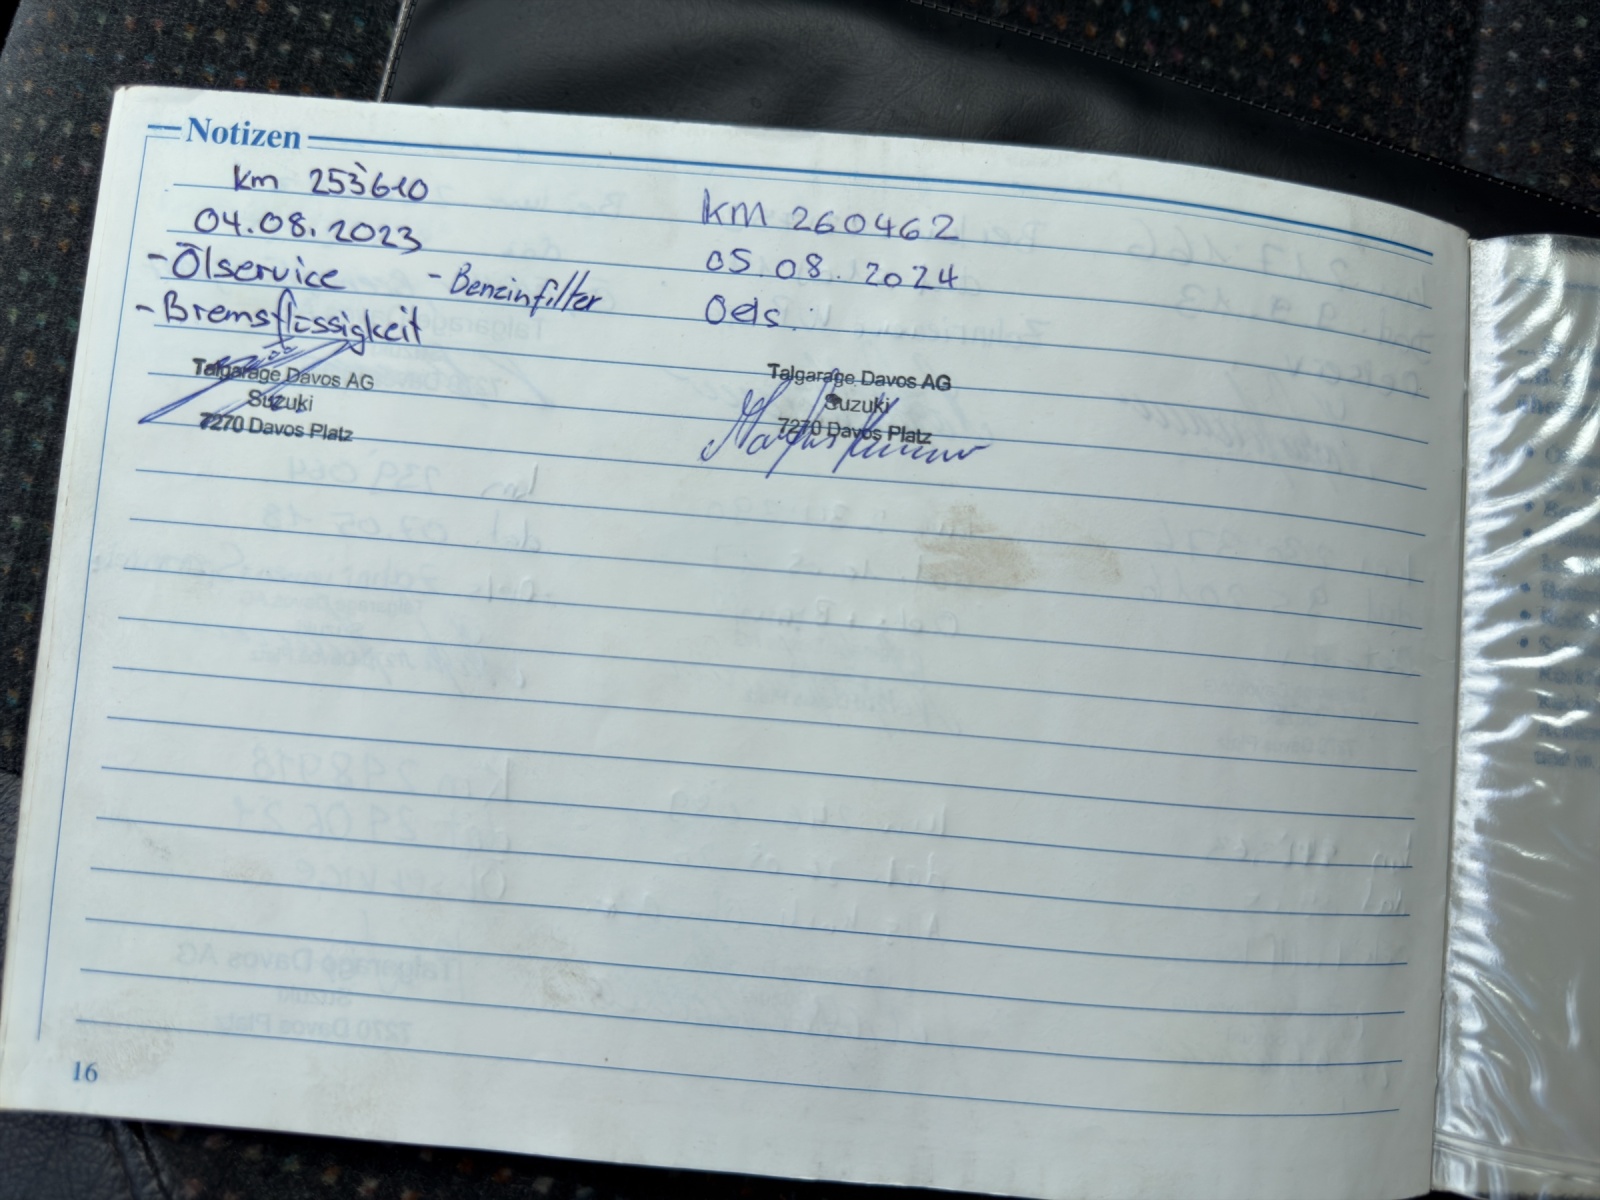 Notizen
km 253'610
04.08.2023
- Ölservice - Benzinfilter
- Bremsflüssigkeit
Talgarage Davos AG
Suzuki
7270 Davos Platz
KM 260462
05.08.2024
Oels.
Talgarage Davos AG
Suzuki
7270 Davos Platz
16